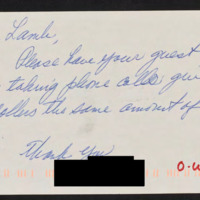 Lamb,
Please have your guest
taking phone calls: giv
callers the same amount of
Thank You
O.W